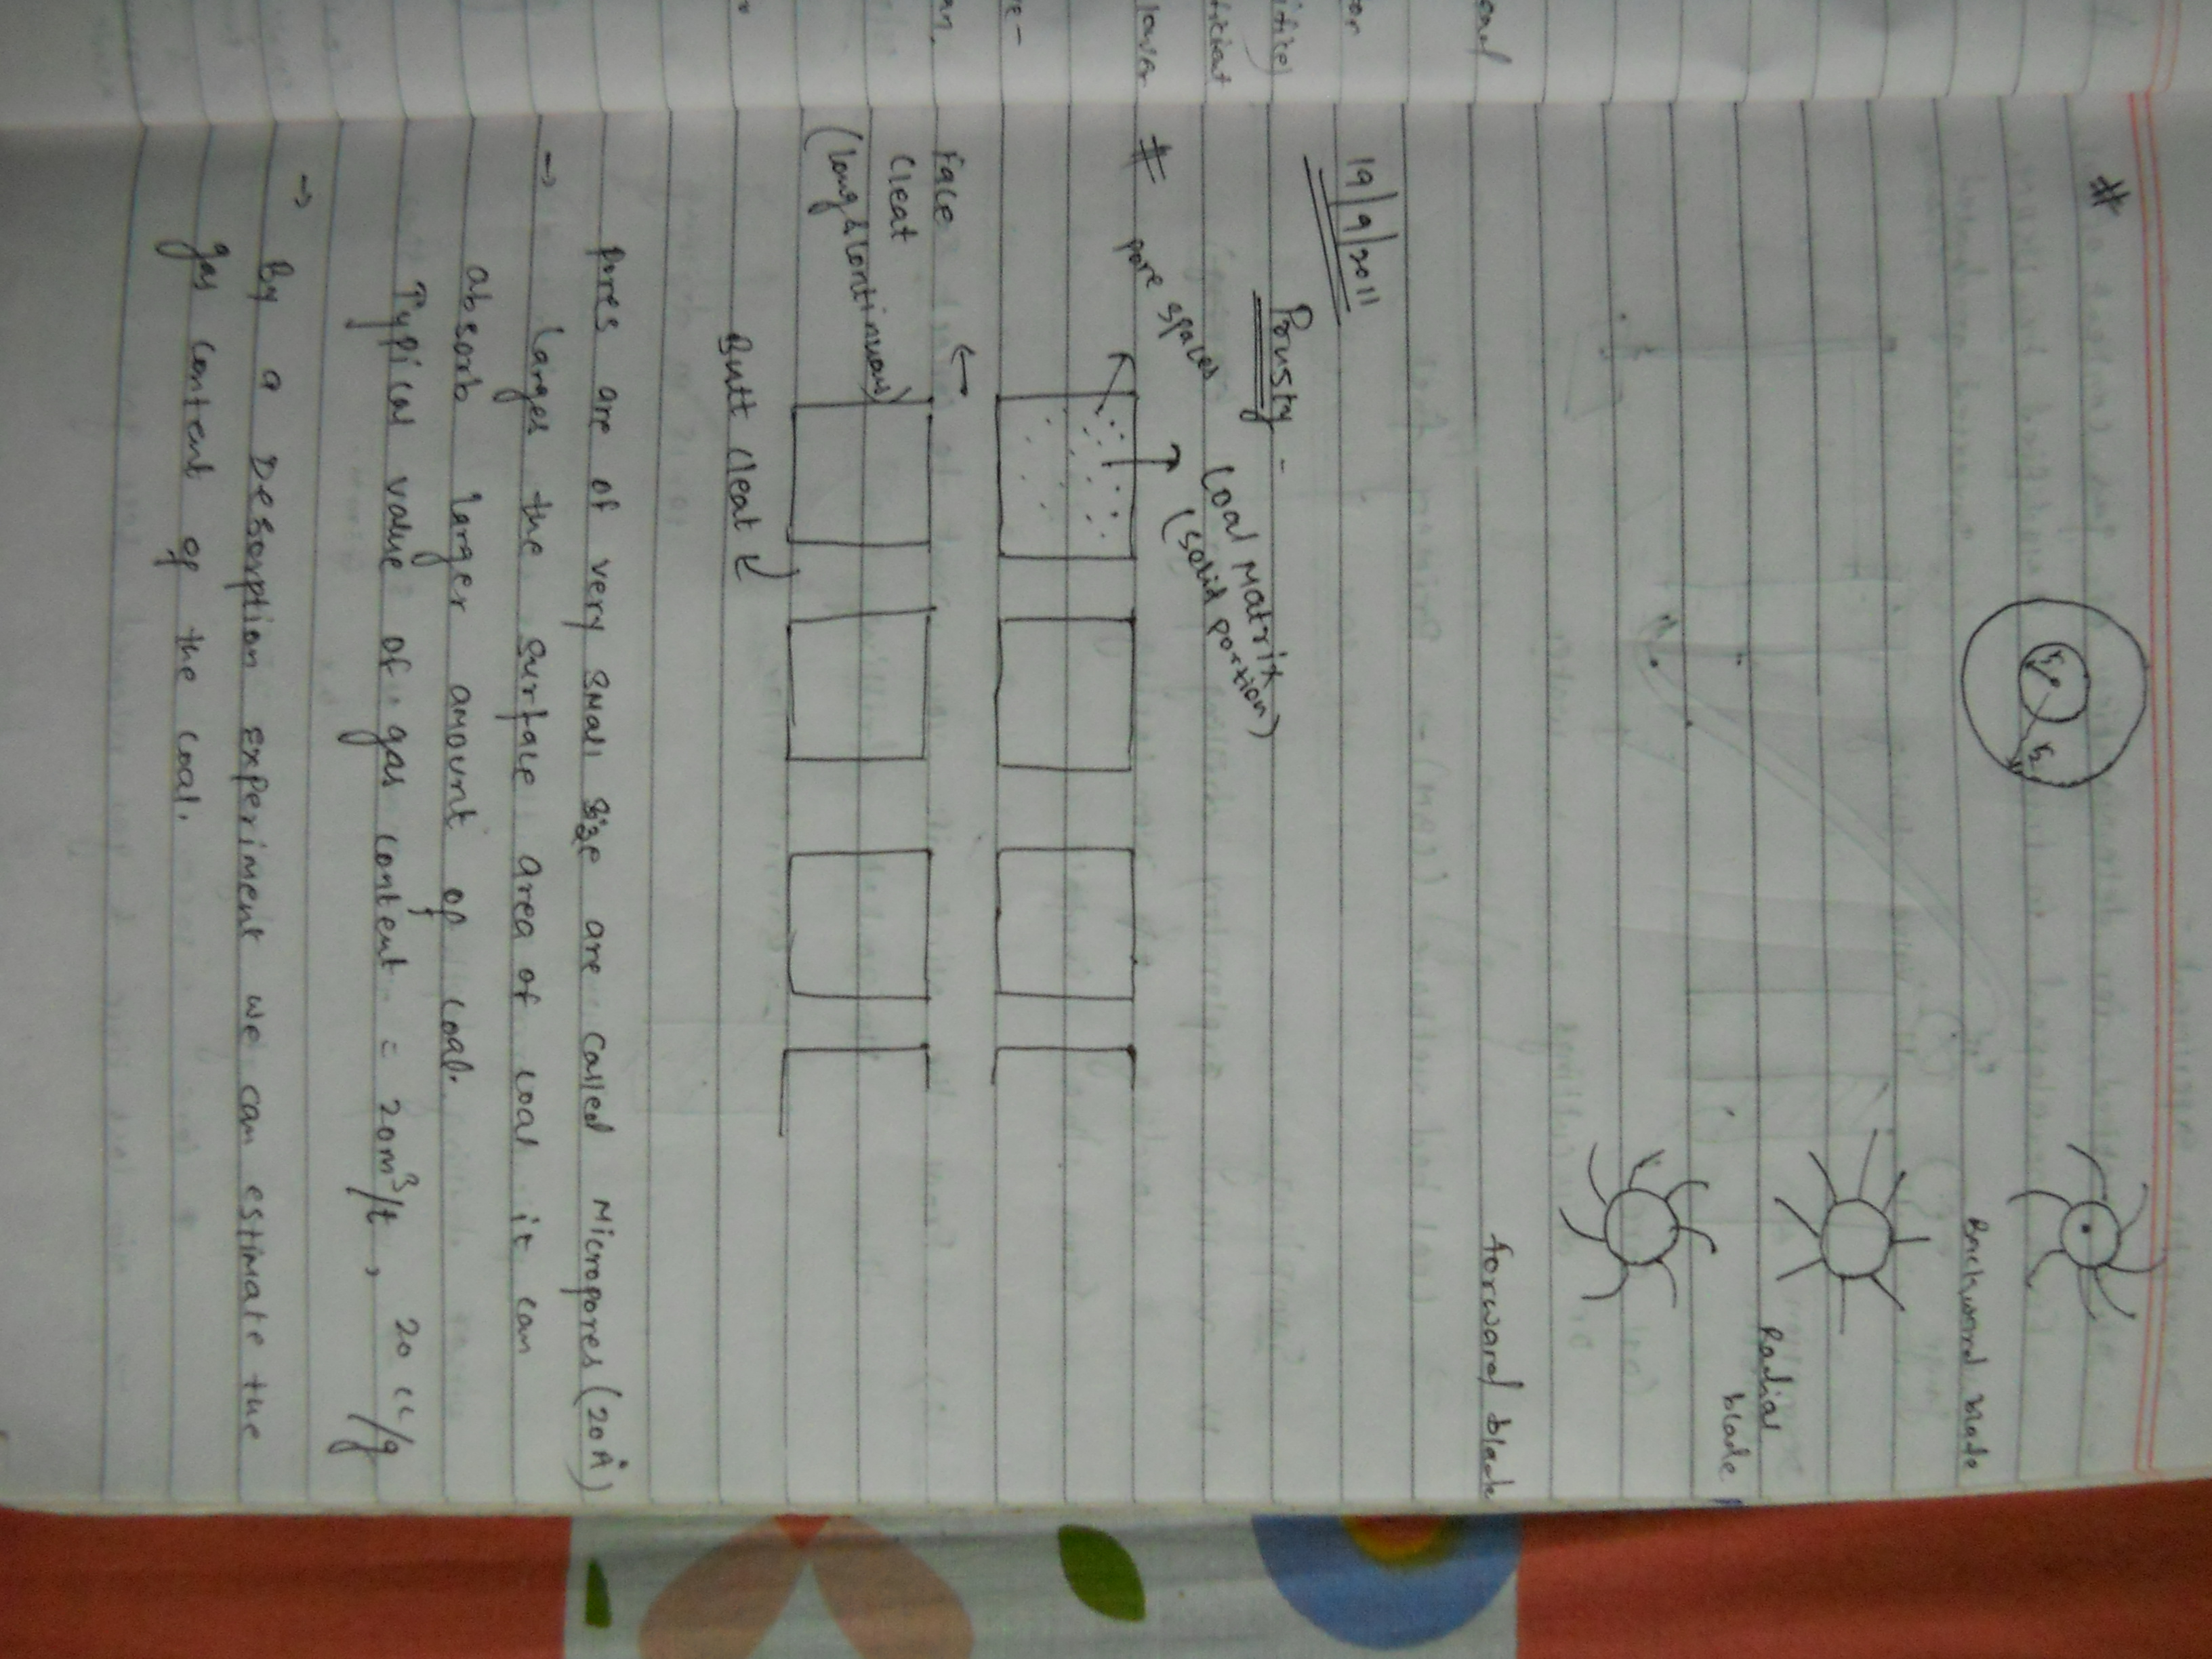 #
r₁
r₂
Backward blade
Radial
blade
forward blade
19/9/2011
Prusty -
# pore spaces
Coal Matrix
(solid portion)
Face
Cleat
(long & continuous)
Butt cleat
pores are of very small size are called Micropores (20Å)
→ larges the surface area of coal it can
absorb larger amount of coal.
Typical value of gas content = 20m³/t, 20 cc/g
→ By a Desorption experiment we can estimate the
gas content of the coal.